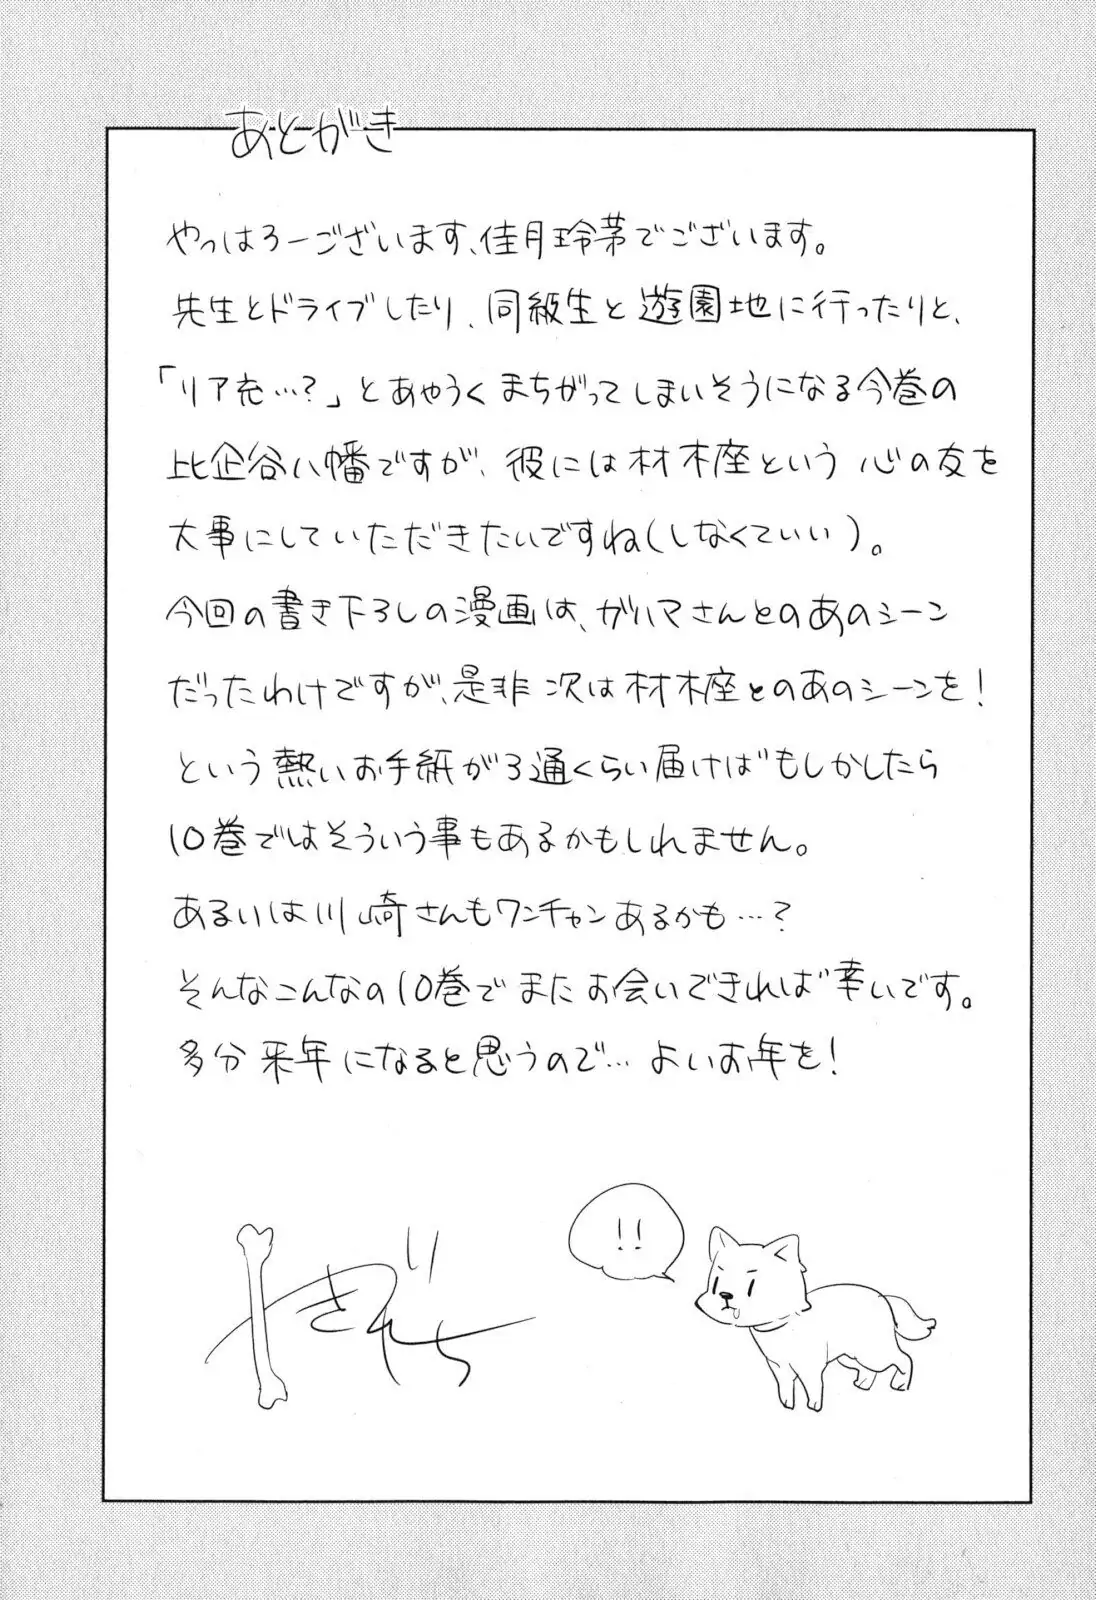 あとがき
やっはろーございます、佳月玲茅でございます。
先生とドライブしたり、同級生と遊園地に行ったりと、
「リア充…?」とあやうくまちがってしまいそうになる今巻の
比企谷八幡ですが、彼には材木座という心の友を
大事にしていただきたいですね(しなくていい)。
今回の書き下ろしの漫画は、ガハマさんとのあのシーン
だったわけですが、是非次は材木座とのあのシーンを!
という熱いお手紙が3通くらい届けばもしかしたら
10巻ではそういう事もあるかもしれません。
あるいは川崎さんもワンチャンあるかも…?
そんなこんなの10巻でまたお会いできれば幸いです。
多分来年になると思うので…よいお年を!
!!